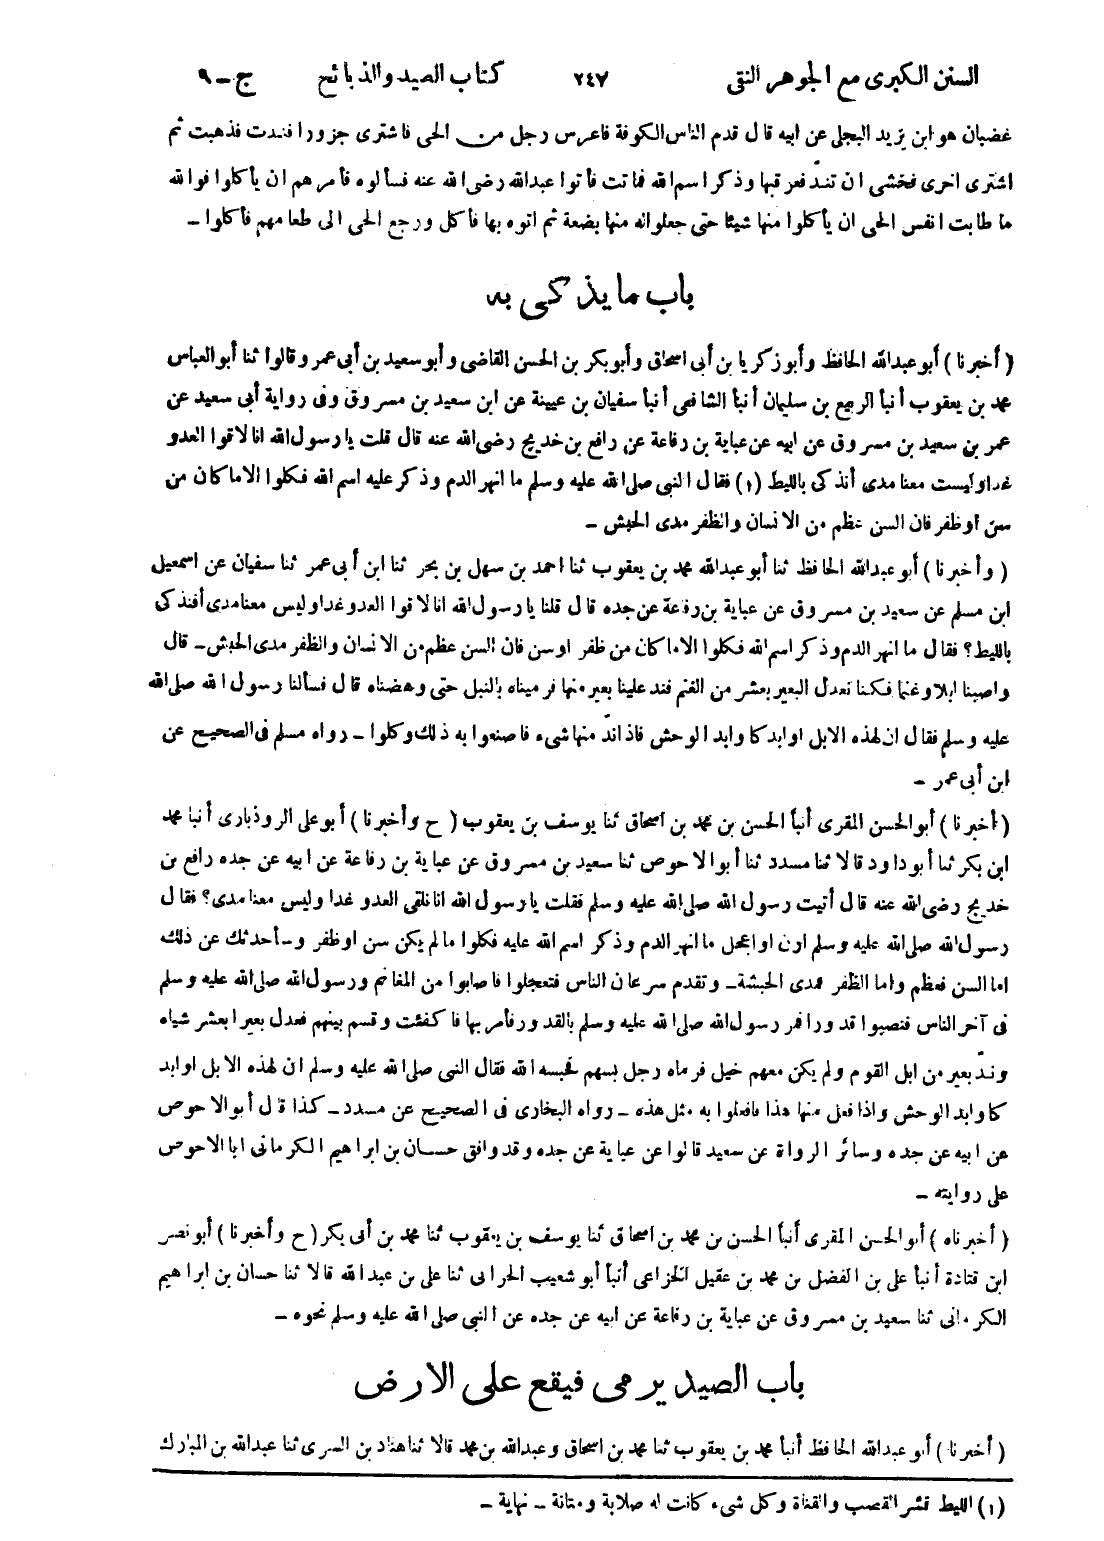 السنن الكبرى مع الجوهر النقى ٢٤٧ كتاب الصيد والذبائح ج ــ ٩
غضبان هو ابن يزيد البجلى عن ابيه قال قدم الناس الكوفة فاعرس رجل من الحى فاشترى جزورا فندت فذهبت ثم
اشترى اخرى فخشى ان تندّ فعرقبها وذكر اسم الله فماتت فأتوا عبدالله رضى الله عنه فسألوه فأمرهم ان يأكلوا فوالله
ما طابت انفس الحى ان يأكلوا منها شيئا حتى جعلوا له منها بضعة ثم اتوه بها فأكل ورجع الحى الى طعامهم فأكلوا ــ
باب ما يذكى به
( أخبرنا ) أبو عبدالله الحافظ وأبو زكريا بن أبى اسحاق وأبو بكر بن الحسن القاضى وأبو سعيد بن أبى عمر وقالوا ثنا أبو العباس
محمد بن يعقوب أنبأ الربيع بن سليمان أنبأ الشافعى أنبأ سفيان بن عيينة عن ابن سعيد بن مسروق وفى رواية أبى سعيد عن
عمر بن سعيد بن مسروق عن ابيه عن عباية بن رفاعة عن رافع بن خديج رضى الله عنه قال قلت يا رسول الله انا لاقوا العدو
غدا وليست معنا مدى أنذكى بالليط (١) فقال النبى صلى الله عليه وسلم ما انهر الدم وذكر عليه اسم الله فكلوا الا ما كان من
سن او ظفر فان السن عظم من الانسان والظفر مدى الحبش ــ
( وأخبرنا ) أبو عبدالله الحافظ ثنا أبو عبدالله محمد بن يعقوب ثنا احمد بن سهل بن بحر ثنا ابن أبى عمر ثنا سفيان عن اسمعيل
ابن مسلم عن سعيد بن مسروق عن عباية بن رفاعة عن جده قال قلنا يا رسول الله انا لاقوا العدو غدا وليس معنا مدى أفنذكى
بالليط؟ فقال ما انهر الدم وذكر اسم الله فكلوا الا ما كان من ظفر او سن فان السن عظم من الانسان والظفر مدى الحبش ــ قال
واصبنا ابلا وغنما فكنا نعدل البعير بعشر من الغنم فند علينا بعير منها فرميناه بالنبل حتى وهضناه قال فسألنا رسول الله صلى الله
عليه وسلم فقال ان لهذه الابل اوابد كاوابد الوحش فاذا ندّ منها شىء فاصنعوا به ذلك وكلوا ــ رواه مسلم فى الصحيح عن
ابن أبى عمر ــ
( أخبرنا ) أبو الحسن المقرى أنبأ الحسن بن محمد بن اسحاق ثنا يوسف بن يعقوب ( ح وأخبرنا ) أبو على الروذبارى أنبأ محمد
ابن بكر ثنا أبو داود قالا ثنا مسدد ثنا أبو الاحوص ثنا سعيد بن مسروق عن عباية بن رفاعة عن ابيه عن جده رافع بن
خديج رضى الله عنه قال أتيت رسول الله صلى الله عليه وسلم فقلت يا رسول الله انا نلقى العدو غدا وليس معنا مدى؟ فقال
رسول الله صلى الله عليه وسلم ارن او اعجل ما انهر الدم وذكر اسم الله عليه فكلوا ما لم يكن سن او ظفر وسأحدثك عن ذلك
اما السن فعظم واما الظفر فمدى الحبشة ــ وتقدم سرعان الناس فتعجلوا فاصابوا من المغانم ورسول الله صلى الله عليه وسلم
فى آخر الناس فنصبوا قدورا فمر رسول الله صلى الله عليه وسلم بالقدور فأمر بها فاكفئت وقسم بينهم فعدل بعيرا بعشر شياه
وندّ بعير من ابل القوم ولم يكن معهم خيل فرماه رجل بسهم فحبسه الله فقال النبى صلى الله عليه وسلم ان لهذه الابل اوابد
كاوابد الوحش واذا فعل منها هذا فافعلوا به مثل هذه ــ رواه البخارى فى الصحيح عن مسدد ــ كذا قال أبو الاحوص
عن ابيه عن جده وسائر الرواة عن سعيد قالوا عن عباية عن جده وقد وافق حسان بن ابراهيم الكرمانى ابا الاحوص
على روايته ــ
( أخبرناه ) أبو الحسن المقرى أنبأ الحسن بن محمد بن اسحاق ثنا يوسف بن يعقوب ثنا محمد بن أبى بكر ( ح وأخبرنا ) أبو نصر
ابن قتادة أنبأ على بن الفضل بن محمد بن عقيل الخزاعى أنبأ أبو شعيب الحرانى ثنا على بن عبدالله قالا ثنا حسان بن ابراهيم
الكرمانى ثنا سعيد بن مسروق عن عباية بن رفاعة عن ابيه عن جده عن النبى صلى الله عليه وسلم نحوه ــ
باب الصيد يرمى فيقع على الارض
( أخبرنا ) أبو عبدالله الحافظ أنبأ محمد بن يعقوب ثنا محمد بن اسحاق وعبدالله بن محمد قالا ثنا هناد بن السرى ثنا عبدالله بن المبارك
(١) الليط قشر القصب والقناة وكل شىء كانت له صلابة ومتانة ــ نهاية ــ